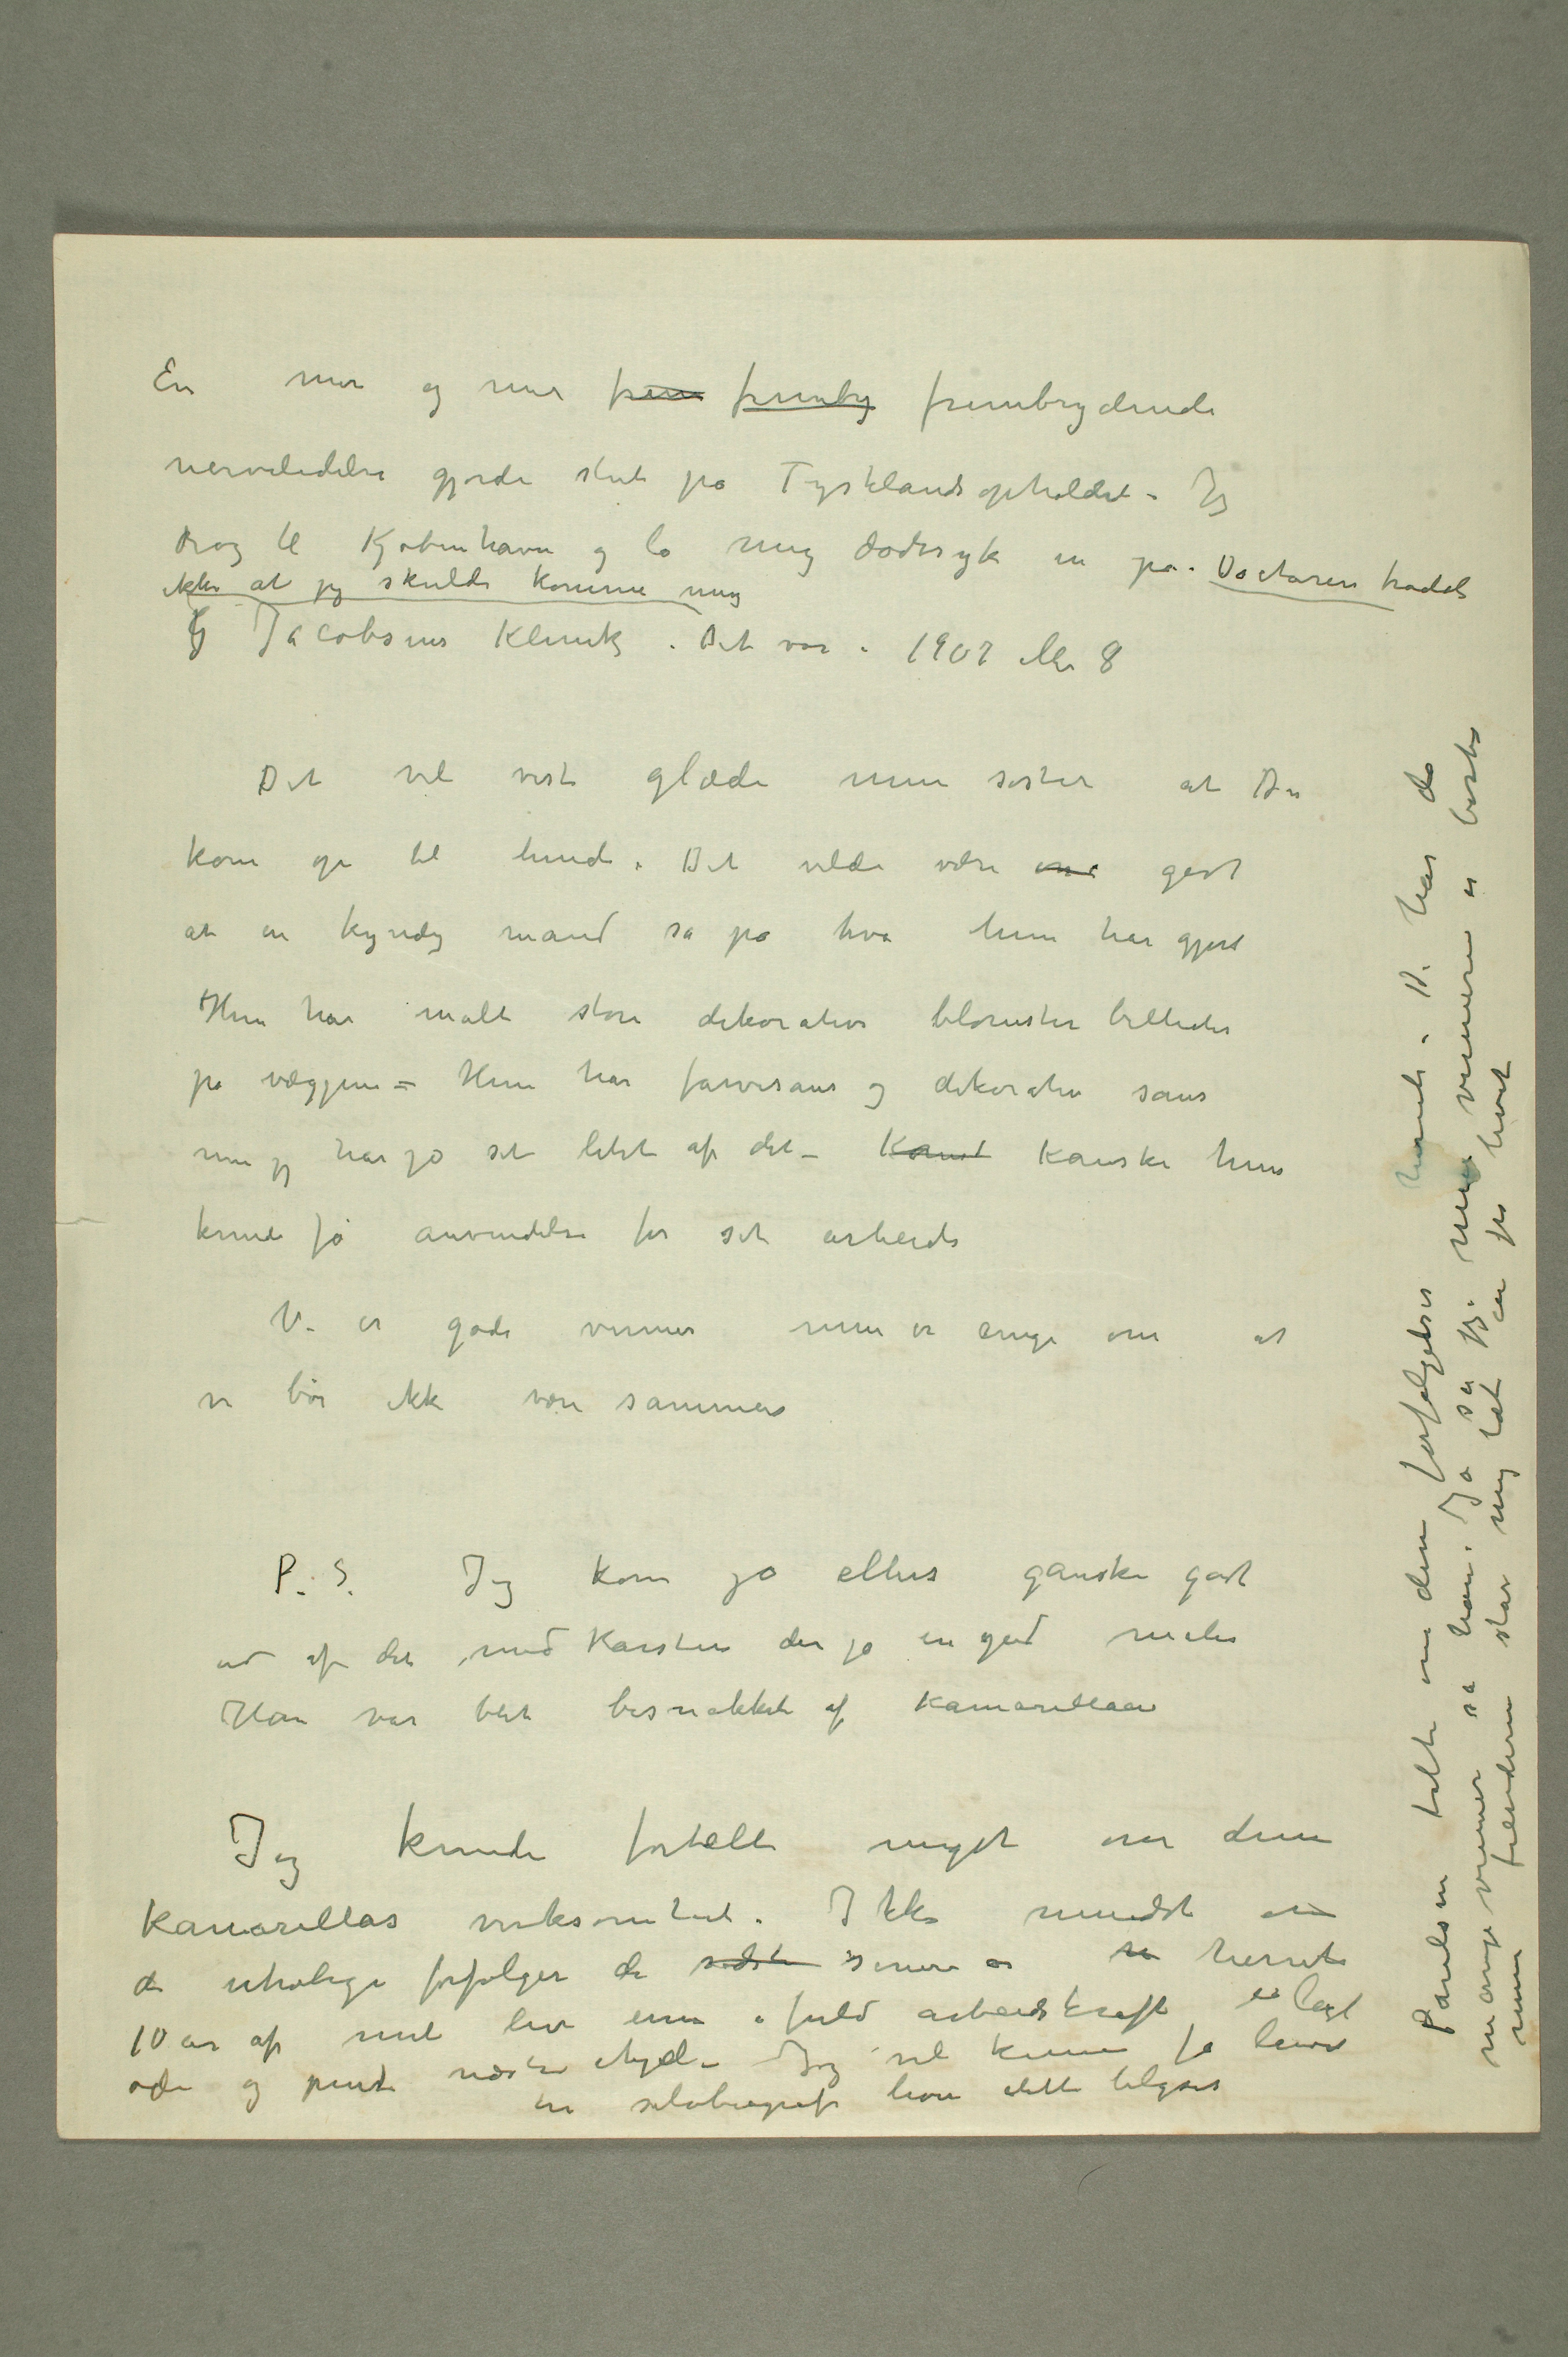 En mer og mer frem fremby frembrydende
nervelidelse gjorde slut på Tysklandsopholdet – Jeg
drog til Kjøbenhavn og lå meg dødssyk in på. Doctoren trodde
ikke at jeg skulde komme meg
Jacobsens Klinik. Det var i 1907 eller 8
Det vil vist glæde min søster at De
kom op til hende. Det vilde være godt
at en kyndig mand så på hva hun har gjort
Hun har malt store dekorative blomster billeder
på væggene – Hun har farvesans og dekorativ sans
men jeg har jo set lidet af det – Kanske hun
kunde få anvendelse for sit arbeide
Vi er gode venner men er enige om at
vi bør ikke være sammen
P.S. Jeg kom jo ellers ganske godt
ud af det med Karsten der jo er en god maler
Han var blet besnakket af Kamarillaen
Jeg kunde fortelle meget om denne
Kamarillas virksomhet. Ikke mindst om
de utrolige forfølgelser de sidste senere år har hernet
10 år af mit liv ennu i fuld arbeidskraft er lagt
øde og pint næsten ihjel – Jeg vil kunne få levere
en selvbiografi hvor dette belyses
Paulsen talte om den forfølgelses hernede. De har da
mange venner sa han. Ja sa jeg. men vennerne er borte
mens fienderne står meg tæt på livet